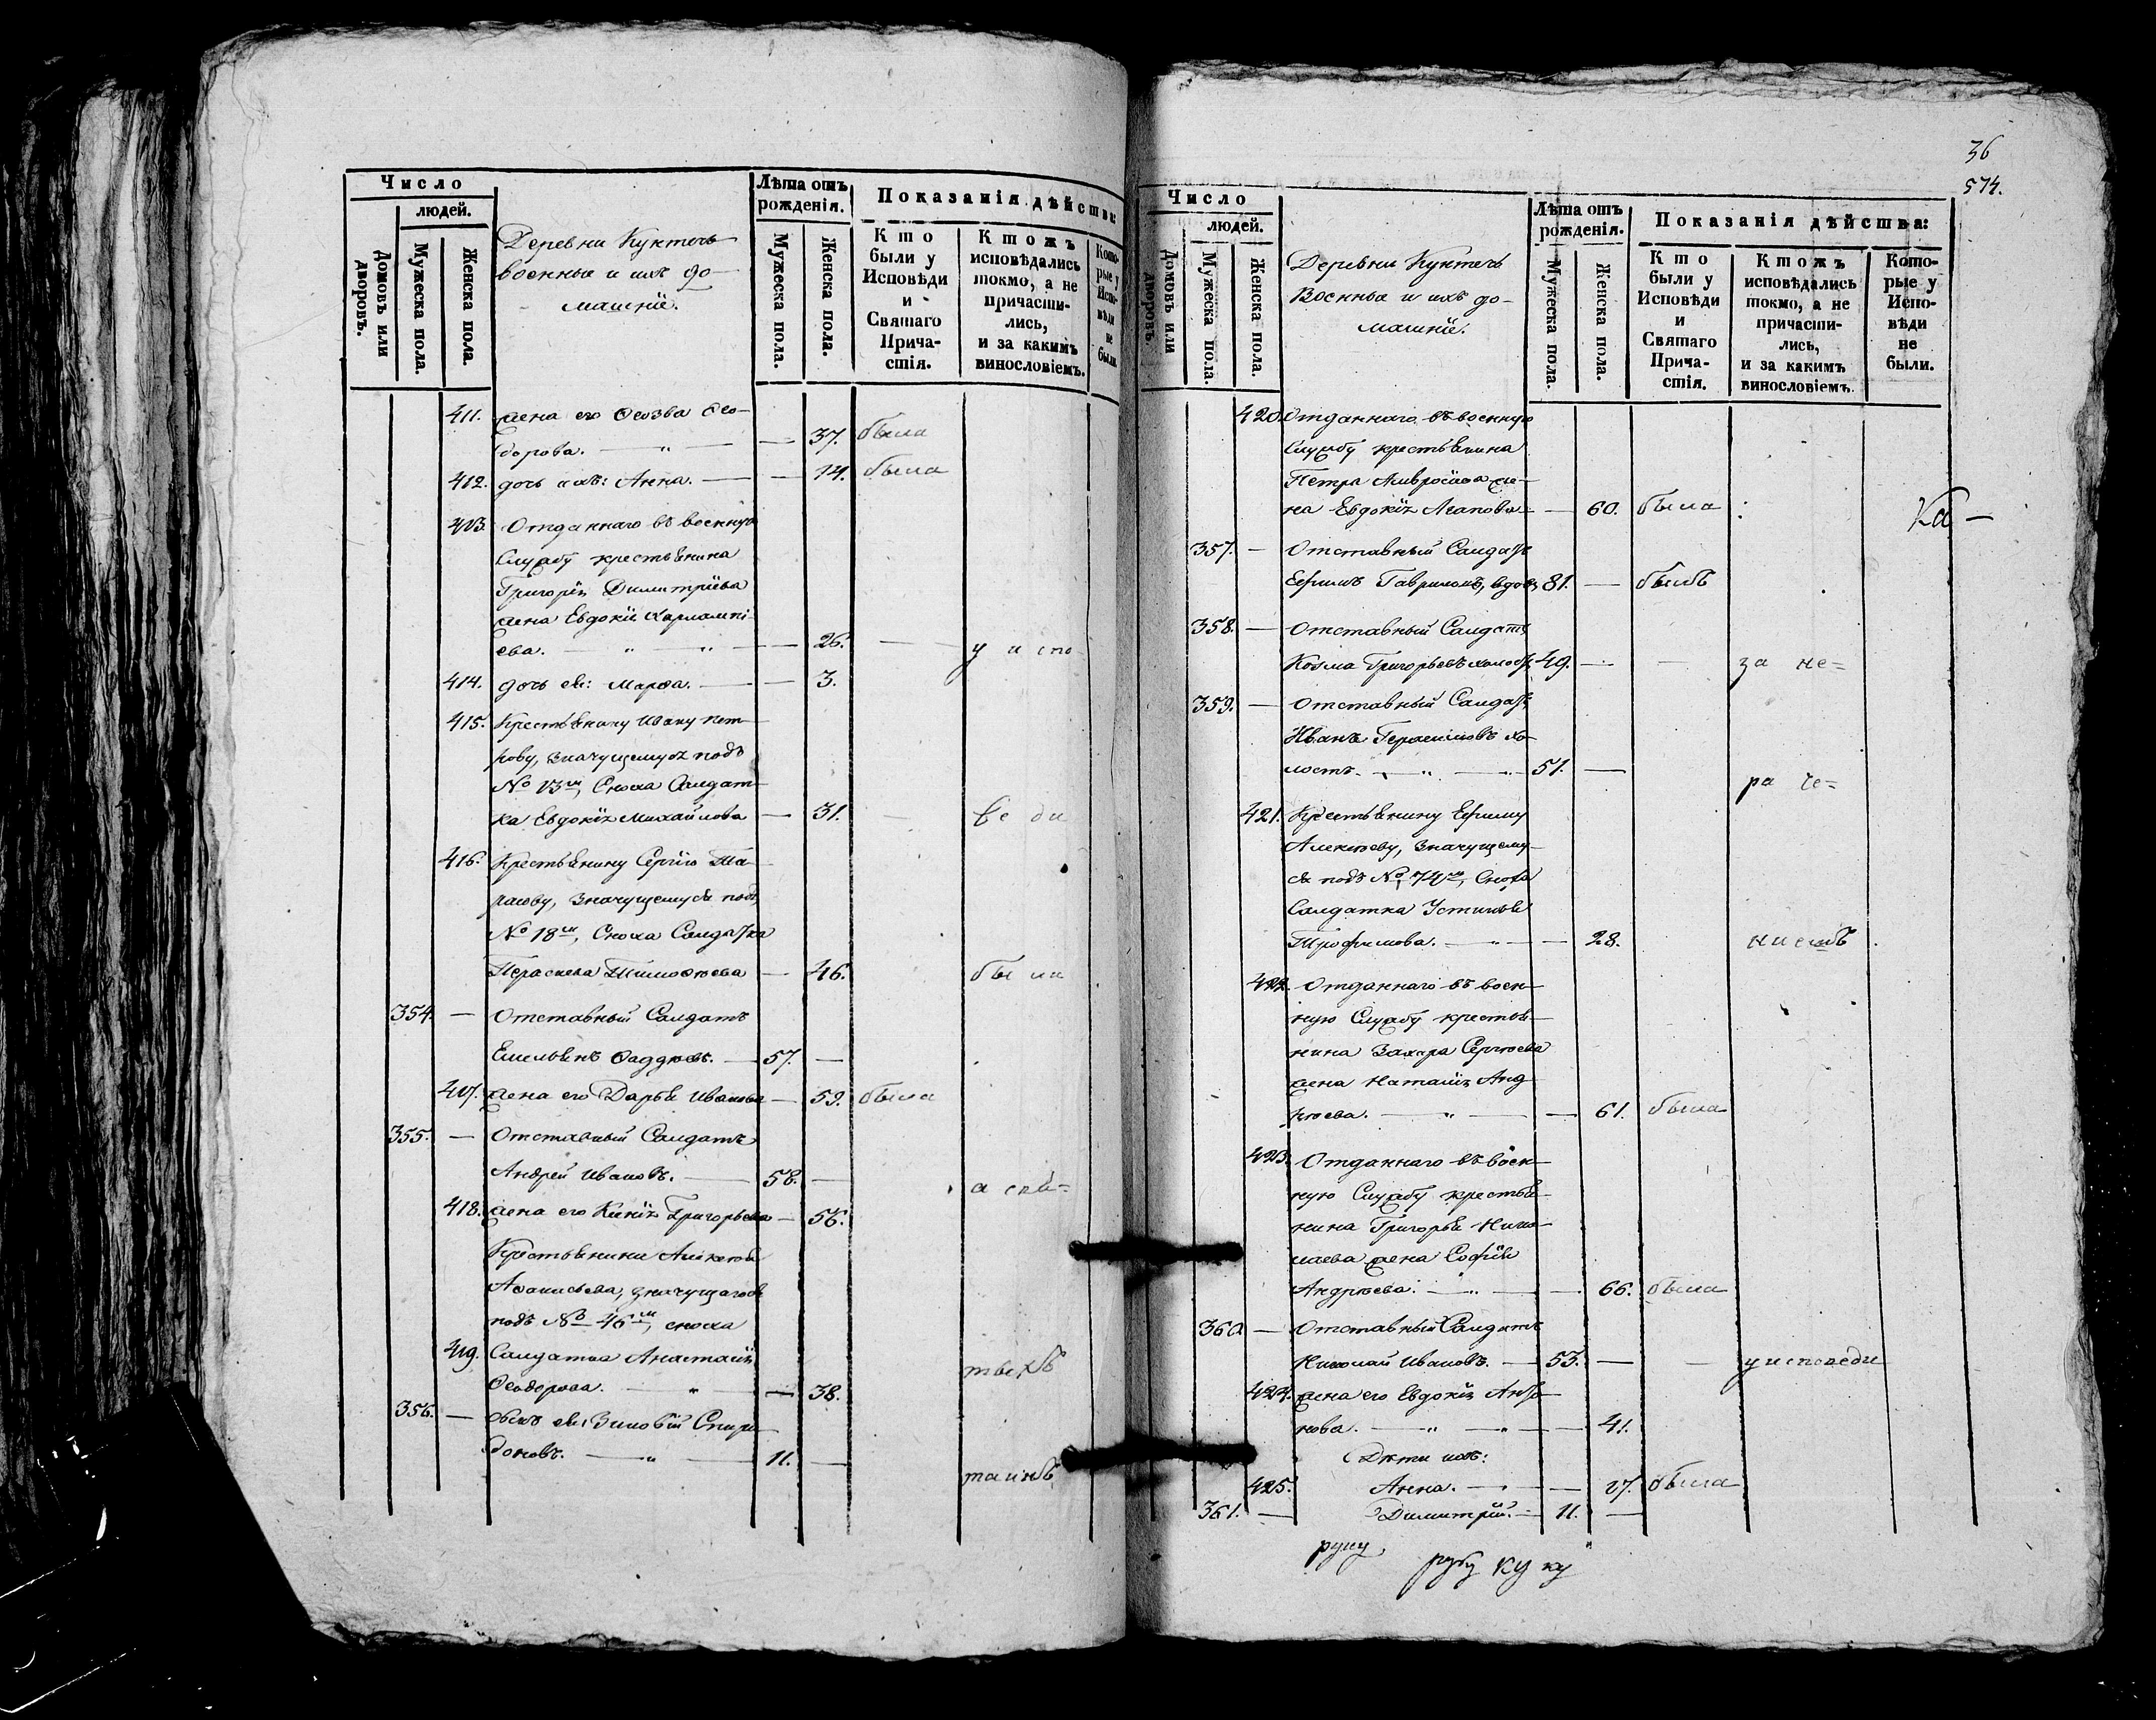 Число
людей.
Домовъ или дворовъ.
Мужеска пола.
Женска пола.
Деревни Куктечь
военные и ихъ до-
машніе.
Лѣта отъ
рожденія.
Мужеска пола.
Женска пола.
Показанія дѣйства:
Кто
были у
Исповѣди
и
Святаго
Прича-
стія.
Ктожъ
исповѣдались
токмо, а не
причасти-
лись,
и за какимъ
винословіемъ.
Кото-
рые у
Испо-
вѣди
не
были.
411. жена его Ѳео-
дорова. — „ — — 37. была
412. дочь ихъ: Анна. — — 14. была
413. Отданнаго въ военную
Службу крестьянина
Григорія Димитріева
жена Евдокія Харлампі-
ева. — „ — „ — — 26. — у испо
414. дочь ея: Марѳа. — — 3.
415. Крестьянину Ивану Пет-
рову, значущемуся подъ
№ 13м, Сноха Солдат-
ка Евдокія Михайлова — 31. — ве ди
416. Крестьянину Сергію Та-
расову, значущемуся подъ
№ 18м, Сноха Солдатка
Параскева Тимоѳеева — 46. бы ли
354. — Отставный Солдатъ
Емельянъ Ѳаддѣевъ. — 57. —
417. жена его Дарья Иванова — 59. была
355. — Отставный Солдатъ
Андрей Ивановъ. — 58. —
418. жена его Ксенія Григорьева — 56.
Крестьянина Алексѣя
Аѳанасьева, значущагося
подъ № 46м, сноха
419. Солдатка Анастасія
Ѳеодорова. — „ — — 38.
356. — сынъ ея: Зиновій Спири-
доновъ. — „ — 11. —
36
574.
Число
людей.
Домовъ или дворовъ.
Мужеска пола.
Женска пола.
Деревни Куктечь
Военные и ихъ до-
машніе.
Лѣта отъ
рожденія.
Мужеска пола.
Женска пола.
Показанія дѣйства:
Кто
были у
Исповѣди
и
Святаго
Прича-
стія.
Ктожъ
исповѣдались
токмо, а не
причасти-
лись,
и за какимъ
винословіемъ.
Кото-
рые у
Испо-
вѣди
не
были.
420. Отданнаго въ военную
Службу крестьянина
Петра Амвросіева же-
на Евдокія — 60. была
Ка —
357. — Отставный Солдатъ
Ефимъ Гавриловъ, вдовъ 81. — былъ
358. — Отставный Солдатъ
Козма Григорьевъ холостъ 49. — — за не=
359. — Отставный Солдатъ
Иванъ Герасимовъ хо-
лостъ. — „ — 51. —
ра че=
421. Крестьянину Ефиму
Алексѣеву, значущему-
ся подъ № 74м, Сноха
Солдатка Устинья
Трофимова. — „ — — 28.
422. Отданнаго въ воен-
ную Службу крестья-
нина Захара Сергѣева
жена Наталія Анд-
рѣева. — „ — — 61. была
423. Отданнаго въ воен-
ную Службу крестья-
нина Григорья Нико-
лаева жена Софія
Андрѣева. — „ — — 66. была
360. — Отставный Солдатъ
Николай Ивановъ. — 53. — — у исповеди
424. жена его Евдокія Анто-
нова. — „ — „ — — 41.
Дѣти ихъ:
425. Анна. — — 17. была
361. — Димитрій. — 11. —
руку, ку ку